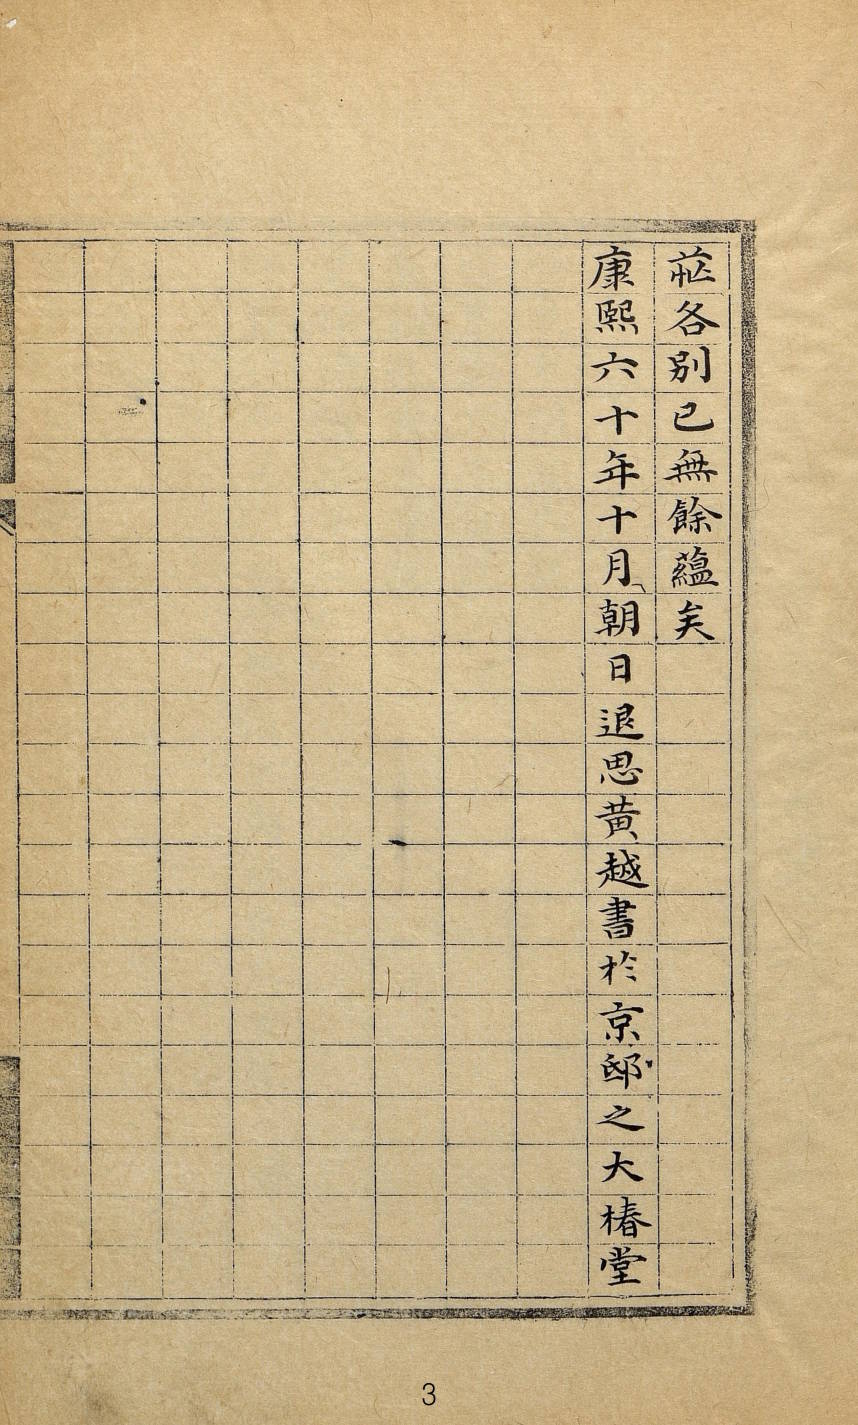 茝各別已無餘蘊矣
康熙六十年十月朝日退思黃越書於京邸之大椿堂
3